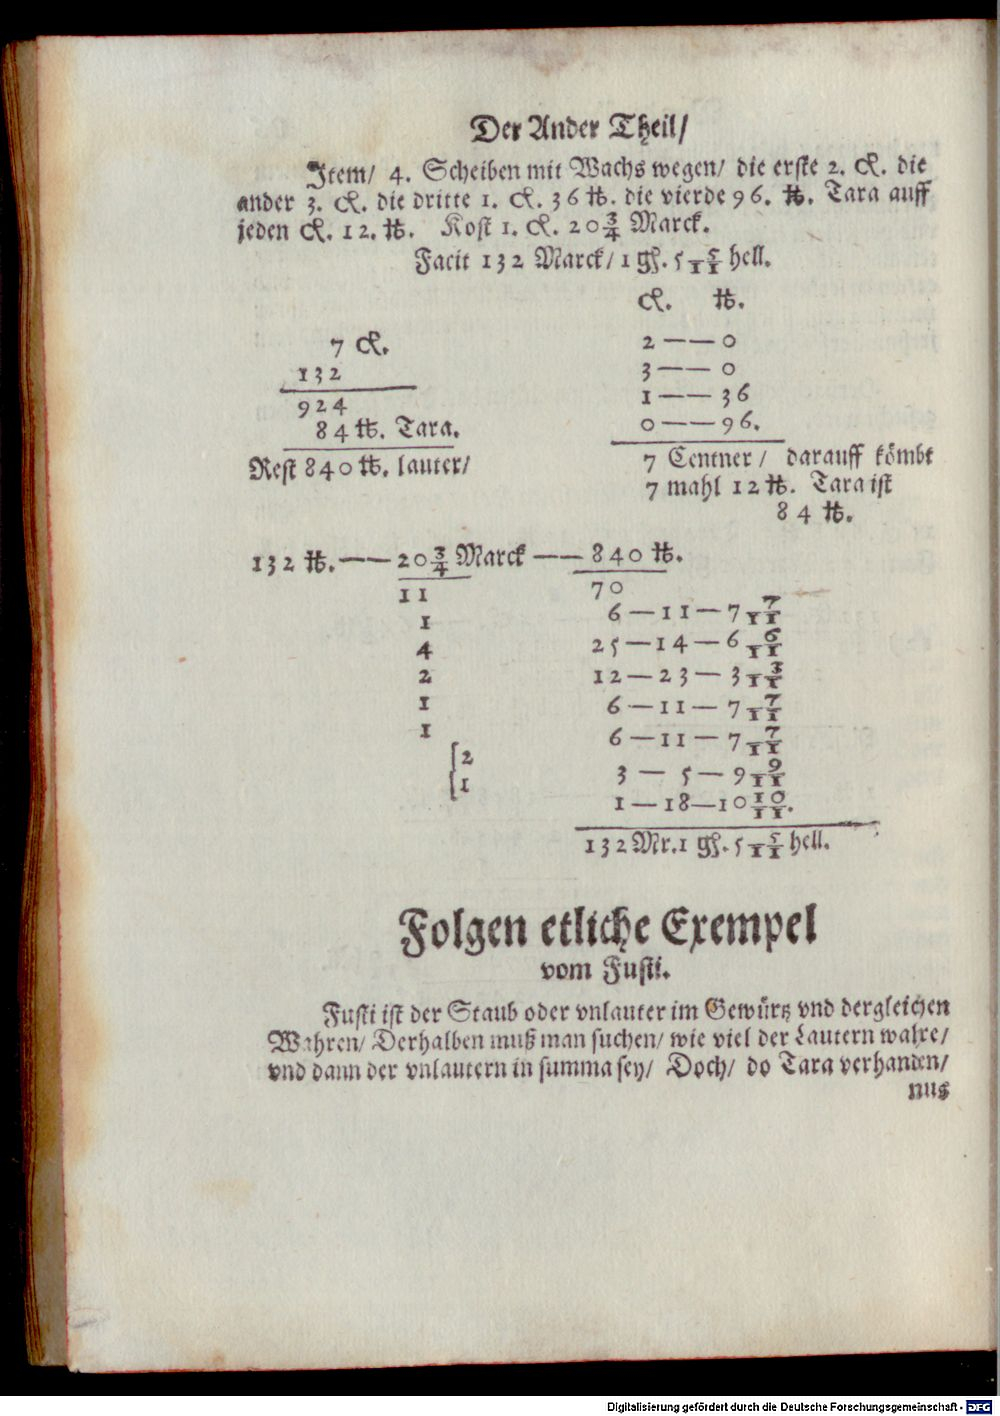 Der Ander Theil/
Item/ 4. Scheiben mit Wachs wegen/ die erste 2. Cl. die
ander 3. Cl. die dritte 1. Cl. 36 ℔. die vierde 96. ℔. Tara auff
jeden Cl. 12. ℔. Kost 1. Cl. 20 3/4 Marck.
Facit 132 Marck/ 1 gß. 5 5/11 hell.
Cl. ℔.
2 —— 0
3 —— 0
1 —— 36
0 —— 96.
7 Centner/ darauff kömbt
7 mahl 12 ℔. Tara ist
84 ℔.
7 Cl.
132
924
84 ℔. Tara.
Rest 840 ℔. lauter/
132 ℔. —— 20 3/4 Marck —— 840 ℔.
11 70
1 6 — 11 — 7 7/11
4 25 — 14 — 6 6/11
2 12 — 23 — 3 3/11
1 6 — 11 — 7 7/11
1 6 — 11 — 7 7/11
2 3 — 5 — 9 9/11
1 1 — 18 — 10 10/11.
132 Mr. 1 gß. 5 5/11 hell.
Folgen etliche Exempel
vom Fusti.
Fusti ist der Staub oder vnlauter im Gewürtz vnd dergleichen
Wahren/ Derhalben muß man suchen/ wie viel der Lautern wahre/
vnd dann der vnlautern in summa sey/ Doch/ do Tara verhanden/
nus
Digitalisierung gefördert durch die Deutsche Forschungsgemeinschaft - DFG